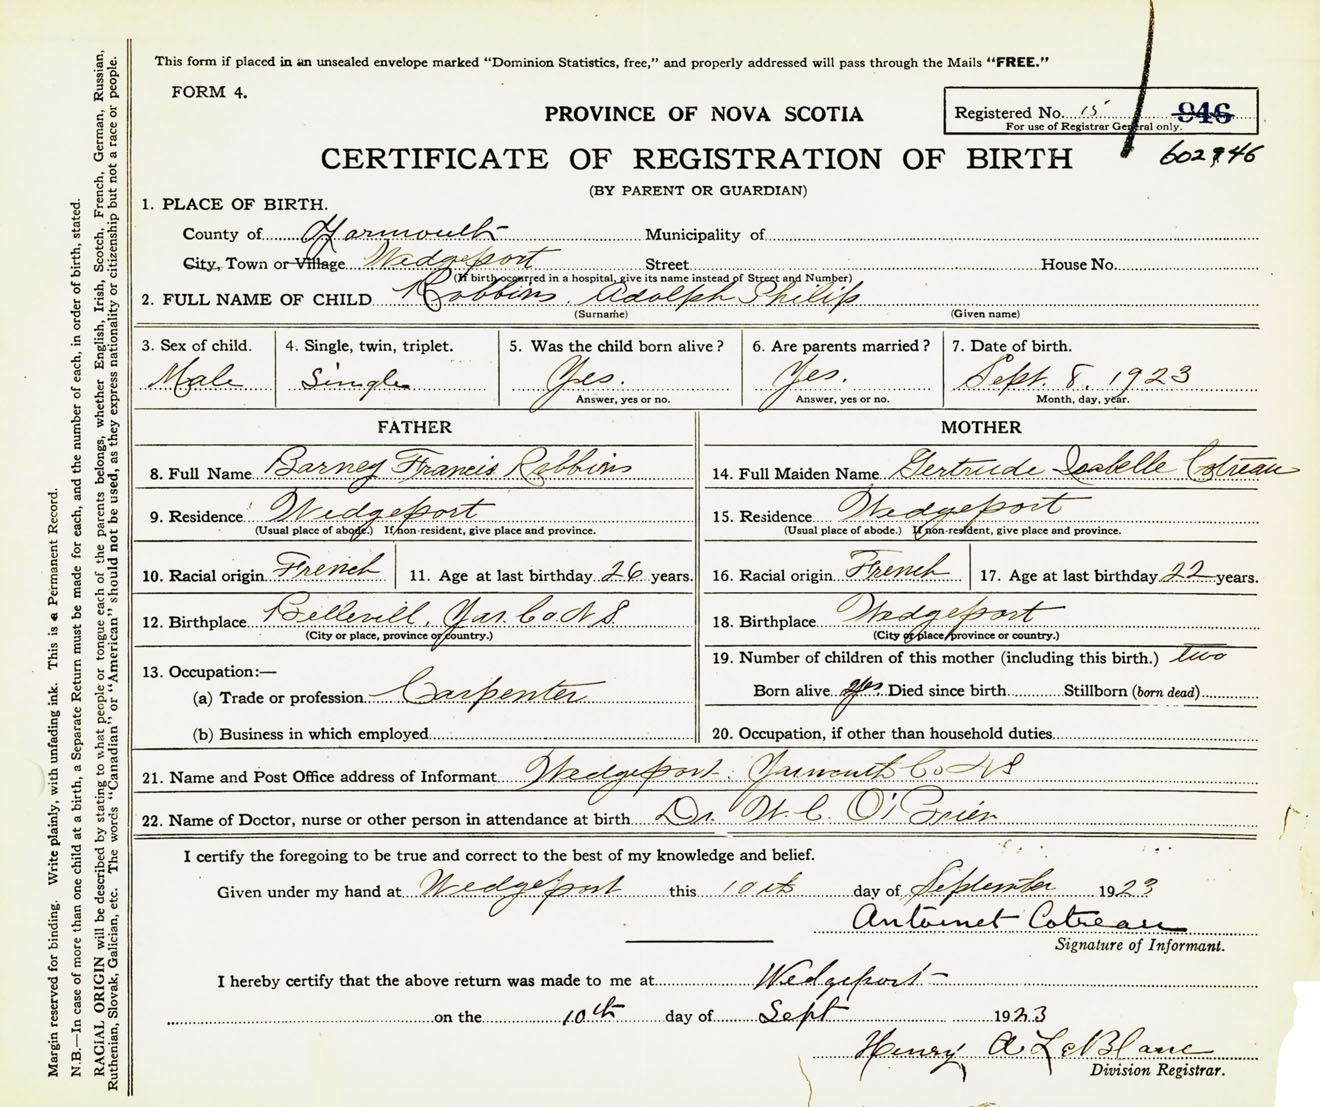 This form if placed in an unsealed envelope marked "Dominion Statistics, free," and properly addressed will pass through the Mails "FREE."
FORM 4.
PROVINCE OF NOVA SCOTIA
Registered No. 15 946
For use of Registrar General only.
602946
CERTIFICATE OF REGISTRATION OF BIRTH
(BY PARENT OR GUARDIAN)
1. PLACE OF BIRTH.
County of Yarmouth Municipality of
City, Town or Village Wedgeport Street House No.
(If birth occurred in a hospital, give its name instead of Street and Number)
2. FULL NAME OF CHILD Robbins. Adolph Philip
(Surname) (Given name)
3. Sex of child. 4. Single, twin, triplet. 5. Was the child born alive? 6. Are parents married? 7. Date of birth.
Male Single Yes. Yes. Sept. 8. 1923
Answer, yes or no. Answer, yes or no. Month, day, year.
FATHER MOTHER
8. Full Name Barney Francis Robbins 14. Full Maiden Name Gertrude Isabelle Cotreau
9. Residence Wedgeport 15. Residence Wedgeport
(Usual place of abode.) If non-resident, give place and province. (Usual place of abode.) If non-resident, give place and province.
10. Racial origin French 11. Age at last birthday 26 years. 16. Racial origin French 17. Age at last birthday 22 years.
12. Birthplace Bellevill, Yar. Co. N S 18. Birthplace Wedgeport
(City or place, province or country.) (City or place, province or country.)
19. Number of children of this mother (including this birth.) two
13. Occupation:—
(a) Trade or profession Carpenter Born alive yes. Died since birth Stillborn (born dead)
(b) Business in which employed 20. Occupation, if other than household duties
21. Name and Post Office address of Informant Wedgeport. Yarmouth Co N S
22. Name of Doctor, nurse or other person in attendance at birth Dr. W. C. O'Brien
I certify the foregoing to be true and correct to the best of my knowledge and belief.
Given under my hand at Wedgeport this 10th day of September 1923
Antoinet Cotreau
Signature of Informant.
I hereby certify that the above return was made to me at Wedgeport
on the 10th day of Sept 1923
Henry A LeBlanc
Division Registrar.
Margin reserved for binding. Write plainly, with unfading ink. This is a Permanent Record.
N.B.—In case of more than one child at a birth, a Separate Return must be made for each, and the number of each, in order of birth, stated.
RACIAL ORIGIN will be described by stating to what people or tongue each of the parents belongs, whether English, Irish, Scotch, French, German, Russian,
Ruthenian, Slovak, Galician, etc. The words "Canadian" or "American" should not be used, as they express nationality or citizenship but not a race or people.